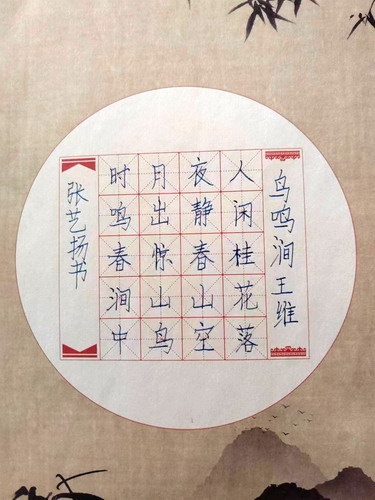 鸟鸣涧王维
人闲桂花落
夜静春山空
月出惊山鸟
时鸣春涧中
张艺扬书